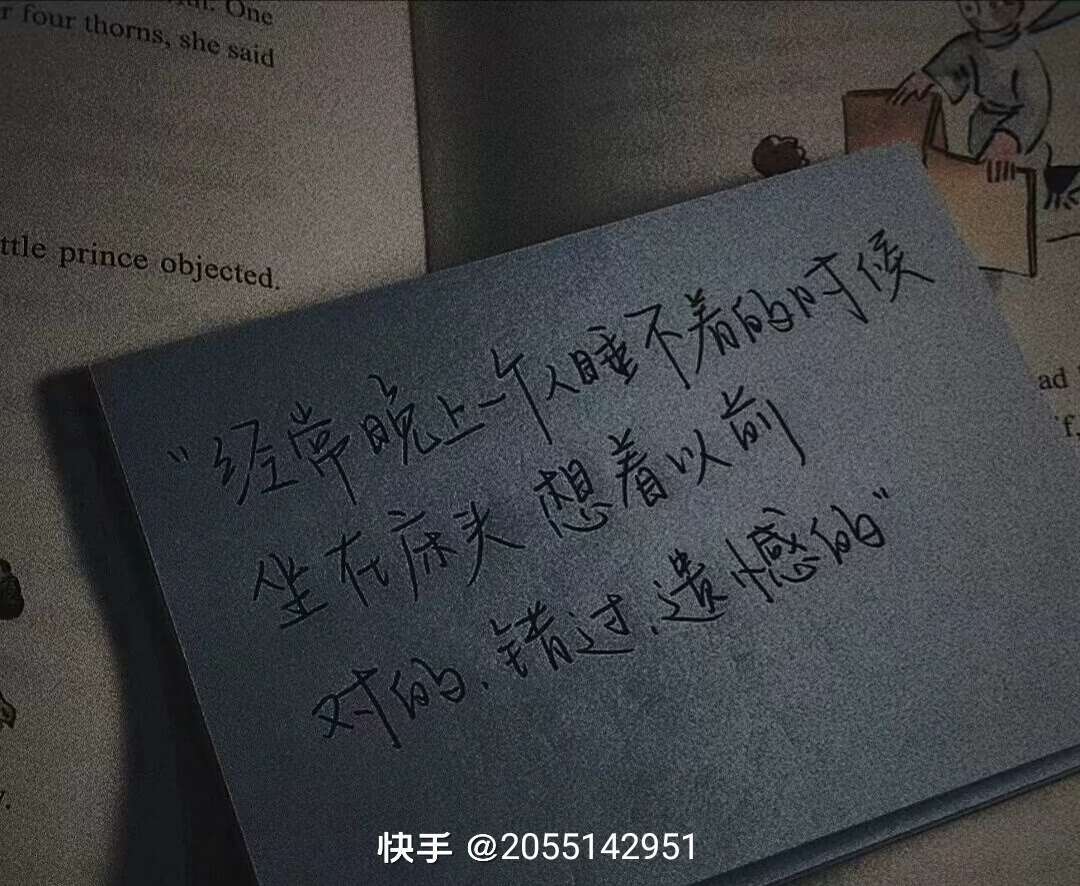 One
r four thorns, she said
ttle prince objected.
"经常晚上一个人睡不着的时候
坐在床头 想着以前
对的、错过、遗憾的"
ad
快手 @2055142951